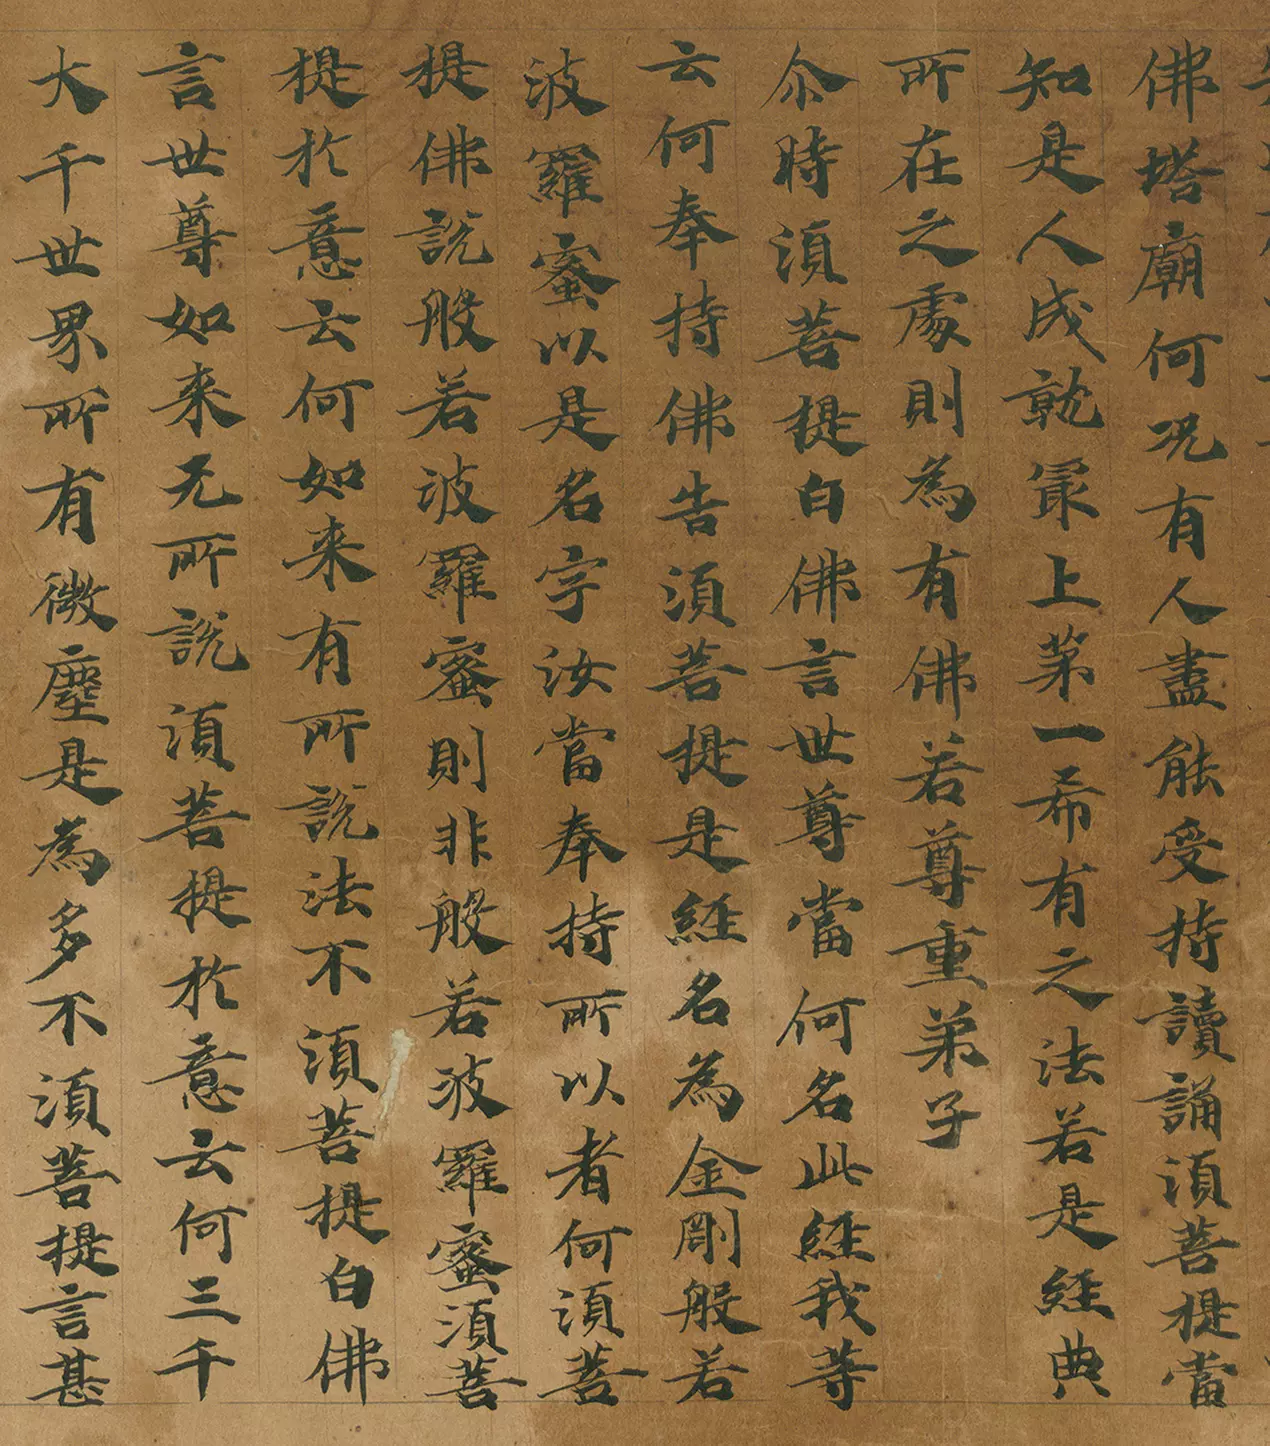 佛塔廟何况有人盡能受持讀誦湏菩提當
知是人成就冣上苐一希有之法若是經典
所在之處則為有佛若尊重弟子
尒時湏菩提白佛言世尊當何名此經我等
云何奉持佛告湏菩提是經名為金剛般若
波羅蜜以是名字汝當奉持所以者何湏菩
提佛說般若波羅蜜則非般若波羅蜜湏菩
提於意云何如来有所說法不湏菩提白佛
言世尊如来无所說湏菩提於意云何三千
大千世界所有微塵是為多不湏菩提言甚